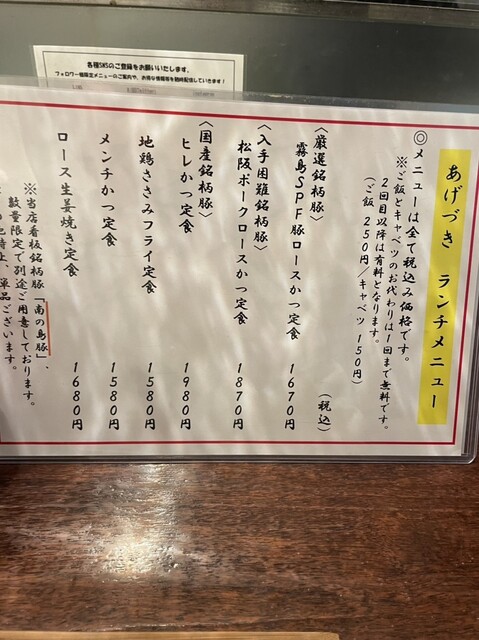 各種SNSのご登録をお願いいたします。
フォロワー様限定メニューのご案内や、お得な情報等を随時配信していきます！
あげづき ランチメニュー
◎メニューは全て税込み価格です。
※ご飯とキャベツのお代わりは1回まで無料です。
2回目以降は有料となります。
(ご飯 250円/キャベツ 150円)
〈厳選銘柄豚〉 (税込)
霧島SPF豚ロースかつ定食 1670円
〈入手困難銘柄豚〉
松阪ポークロースかつ定食 1870円
〈国産銘柄豚〉
ヒレかつ定食 1980円
地鶏ささみフライ定食 1580円
メンチかつ定食 1580円
ロース生姜焼き定食 1680円
※当店看板銘柄豚「南の島豚」、
数量限定で別途ご用意しております。
単品ございます。